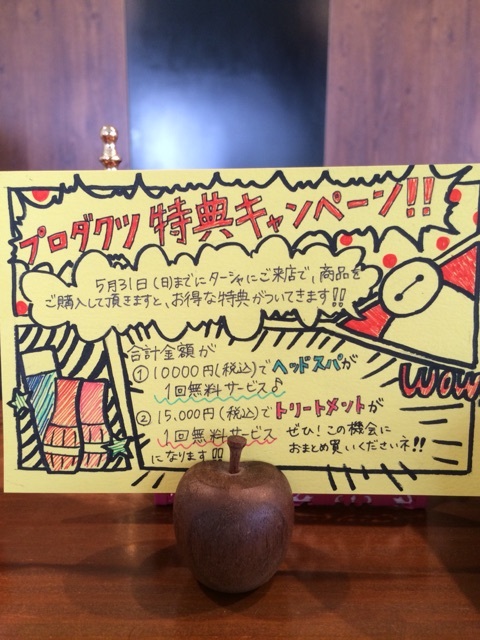 プロダクツ 特典キャンペーン!!
5月31日(日)までにターシャにご来店で、商品を
ご購入して頂きますと、お得な特典がついてきます!!
合計金額が
① 10000円(税込)でヘッドスパが
1回無料サービス♪
② 15,000円(税込)でトリートメントが
1回無料サービス
になります!!
ぜひ!この機会に
おまとめ買いくださいネ!!
WOW